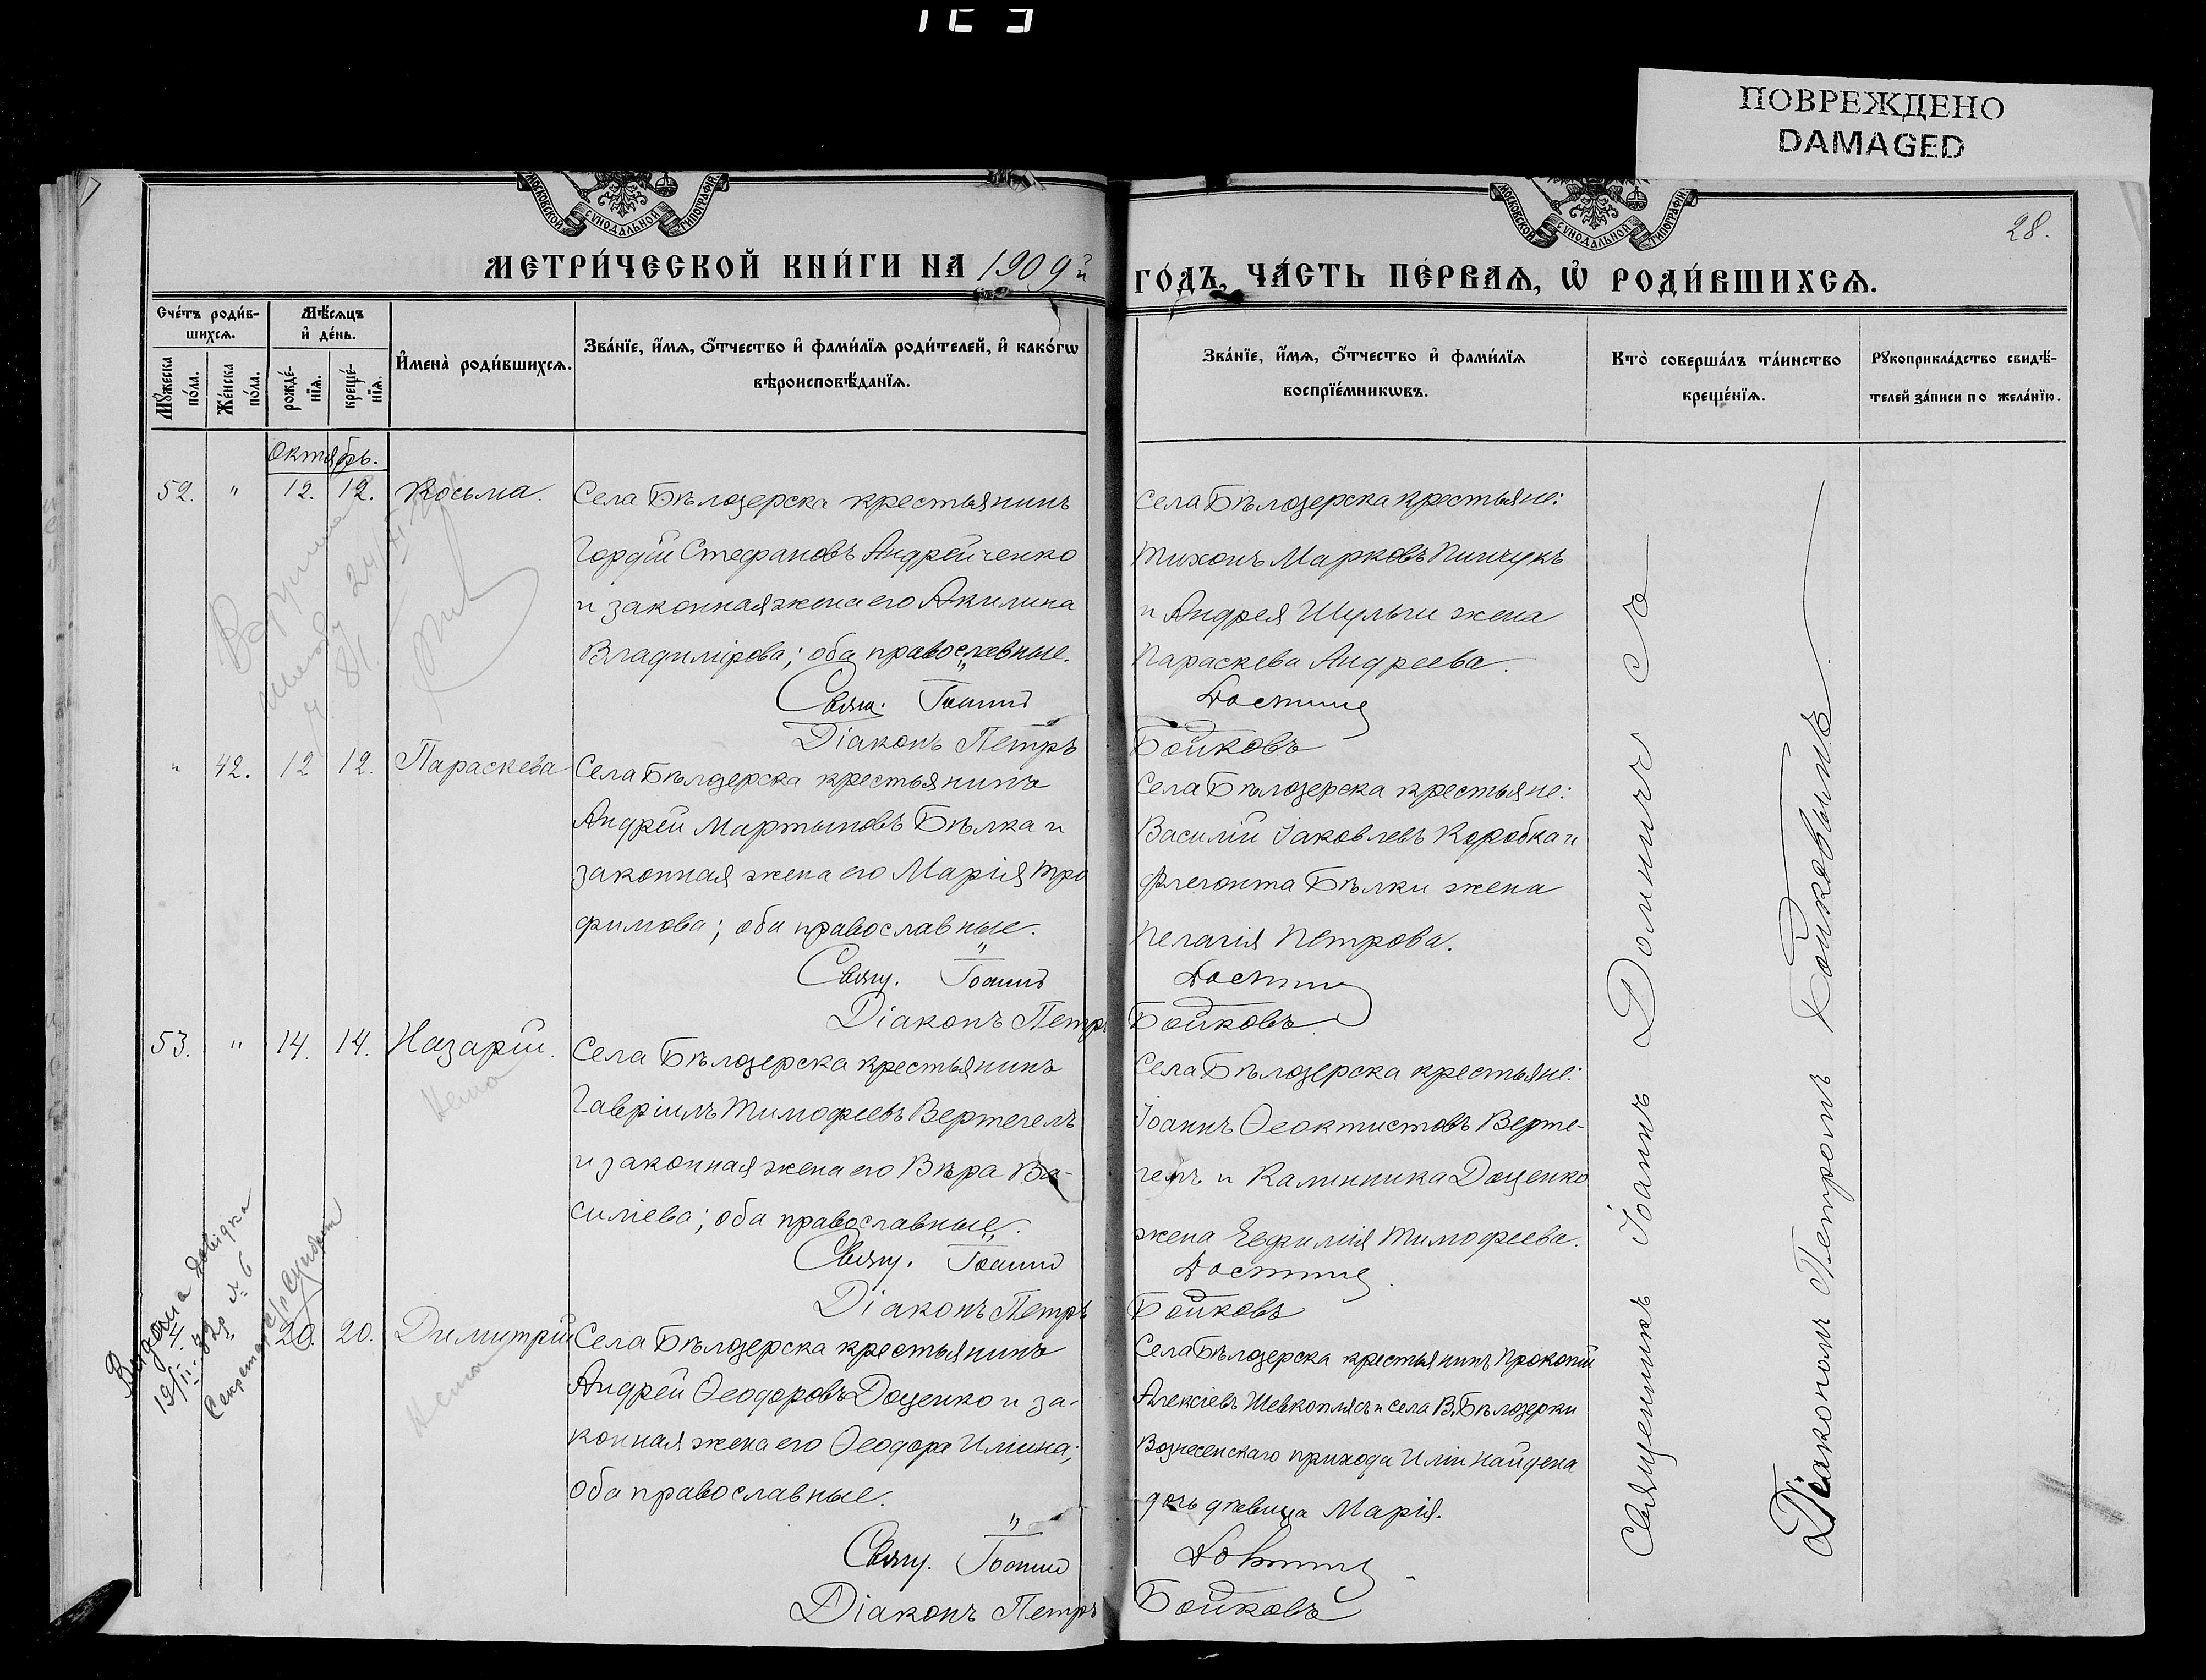 ПОВРЕЖДЕНО
DAMAGED
МОСКОВСКОЙ СѴНОДАЛЬНОЙ ТИПОГРАФІИ.
МОСКОВСКОЙ СѴНОДАЛЬНОЙ ТИПОГРАФІИ.
28.
МЕТРИ́ЧЕСКОЙ КНИ́ГИ НА 1909й
ГО́ДЪ, ЧА́СТЬ ПЕ́РВАѦ, Ѡ҆ РОДИ́ВШИХСѦ.
Сче́тъ роди́в-
шихсѧ.
Мꙋ́жеска по́ла.
Же́нска по́ла.
Мѣ́сѧцъ
и҆ де́нь.
рожде́-
нїѧ.
креще́-
нїѧ.
И҆мена̀ роди́вшихсѧ.
Зва́нїе, и҆́мѧ, ѻ҆́тчество и҆ фами́лїѧ роди́телей, и҆ како́гѡ
вѣроисповѣ́данїѧ.
Зва́нїе, и҆́мѧ, ѻ҆́тчество и҆ фами́лїѧ
воспрїе́мникѡвъ.
Кто̀ соверша́лъ та́инство
креще́нїѧ.
Рꙋкоприкла́дство свидѣ́-
телей за́писи по жела́нїю.
Октябрь.
52. " 12. 12. Косьма.
Села Бѣлозерска крестьянинъ
Гордій Стефановъ Андрейченко
и законная жена его Акилина
Владимірова; оба православные.
Свящ. Іоаннъ
Діаконъ Петръ
Села Бѣлозерска крестьяне:
Тихонъ Марковъ Пинчукъ
и Андрея Шульги жена
Параскева Андреева.
Бойковъ
" 42. 12 12. Параскева
Села Бѣлозерска крестьянинъ
Андрей Мартыновъ Бѣлка и
законная жена его Марія Тро
фимова; оба православные.
Свящ. Іоаннъ
Діаконъ Петръ
Села Бѣлозерска крестьяне:
Василій Іаковлевъ Коробка и
Флегонта Бѣлки жена
Пелагія Петрова.
Бойковъ
53. " 14. 14. Назарій.
Нема
Села Бѣлозерска крестьянинъ
Гавріилъ Тимофеевъ Вертегелъ
и законная жена его Вѣра Ва-
силіева; оба православные.
Свящ. Іоаннъ
Діаконъ Петръ
Села Бѣлозерска крестьяне:
Іоаннъ Ѳеоктистовъ Верте-
гелъ и Калинника Доценко
жена Евфимія Тимофеева.
Бойковъ
20. 20. Димитрій
Нема
Видана довідка
№ 6
Секретар с/р
Села Бѣлозерска крестьянинъ
Андрей Ѳеодоровъ Доценко и за-
конная жена его Ѳеодора Иліина;
оба православные.
Свящ. Іоаннъ
Діаконъ Петръ
Села Бѣлозерска крестьянинъ Прокопій
Алексіевъ Шевкоплясъ и села В. Бѣлозерки
Вознесенскаго прихода Иліи Найдена
дочь дѣвица Марія.
Бойковъ
Священникъ Іоаннъ Долинич съ
Діакономъ Петромъ Бойковымъ